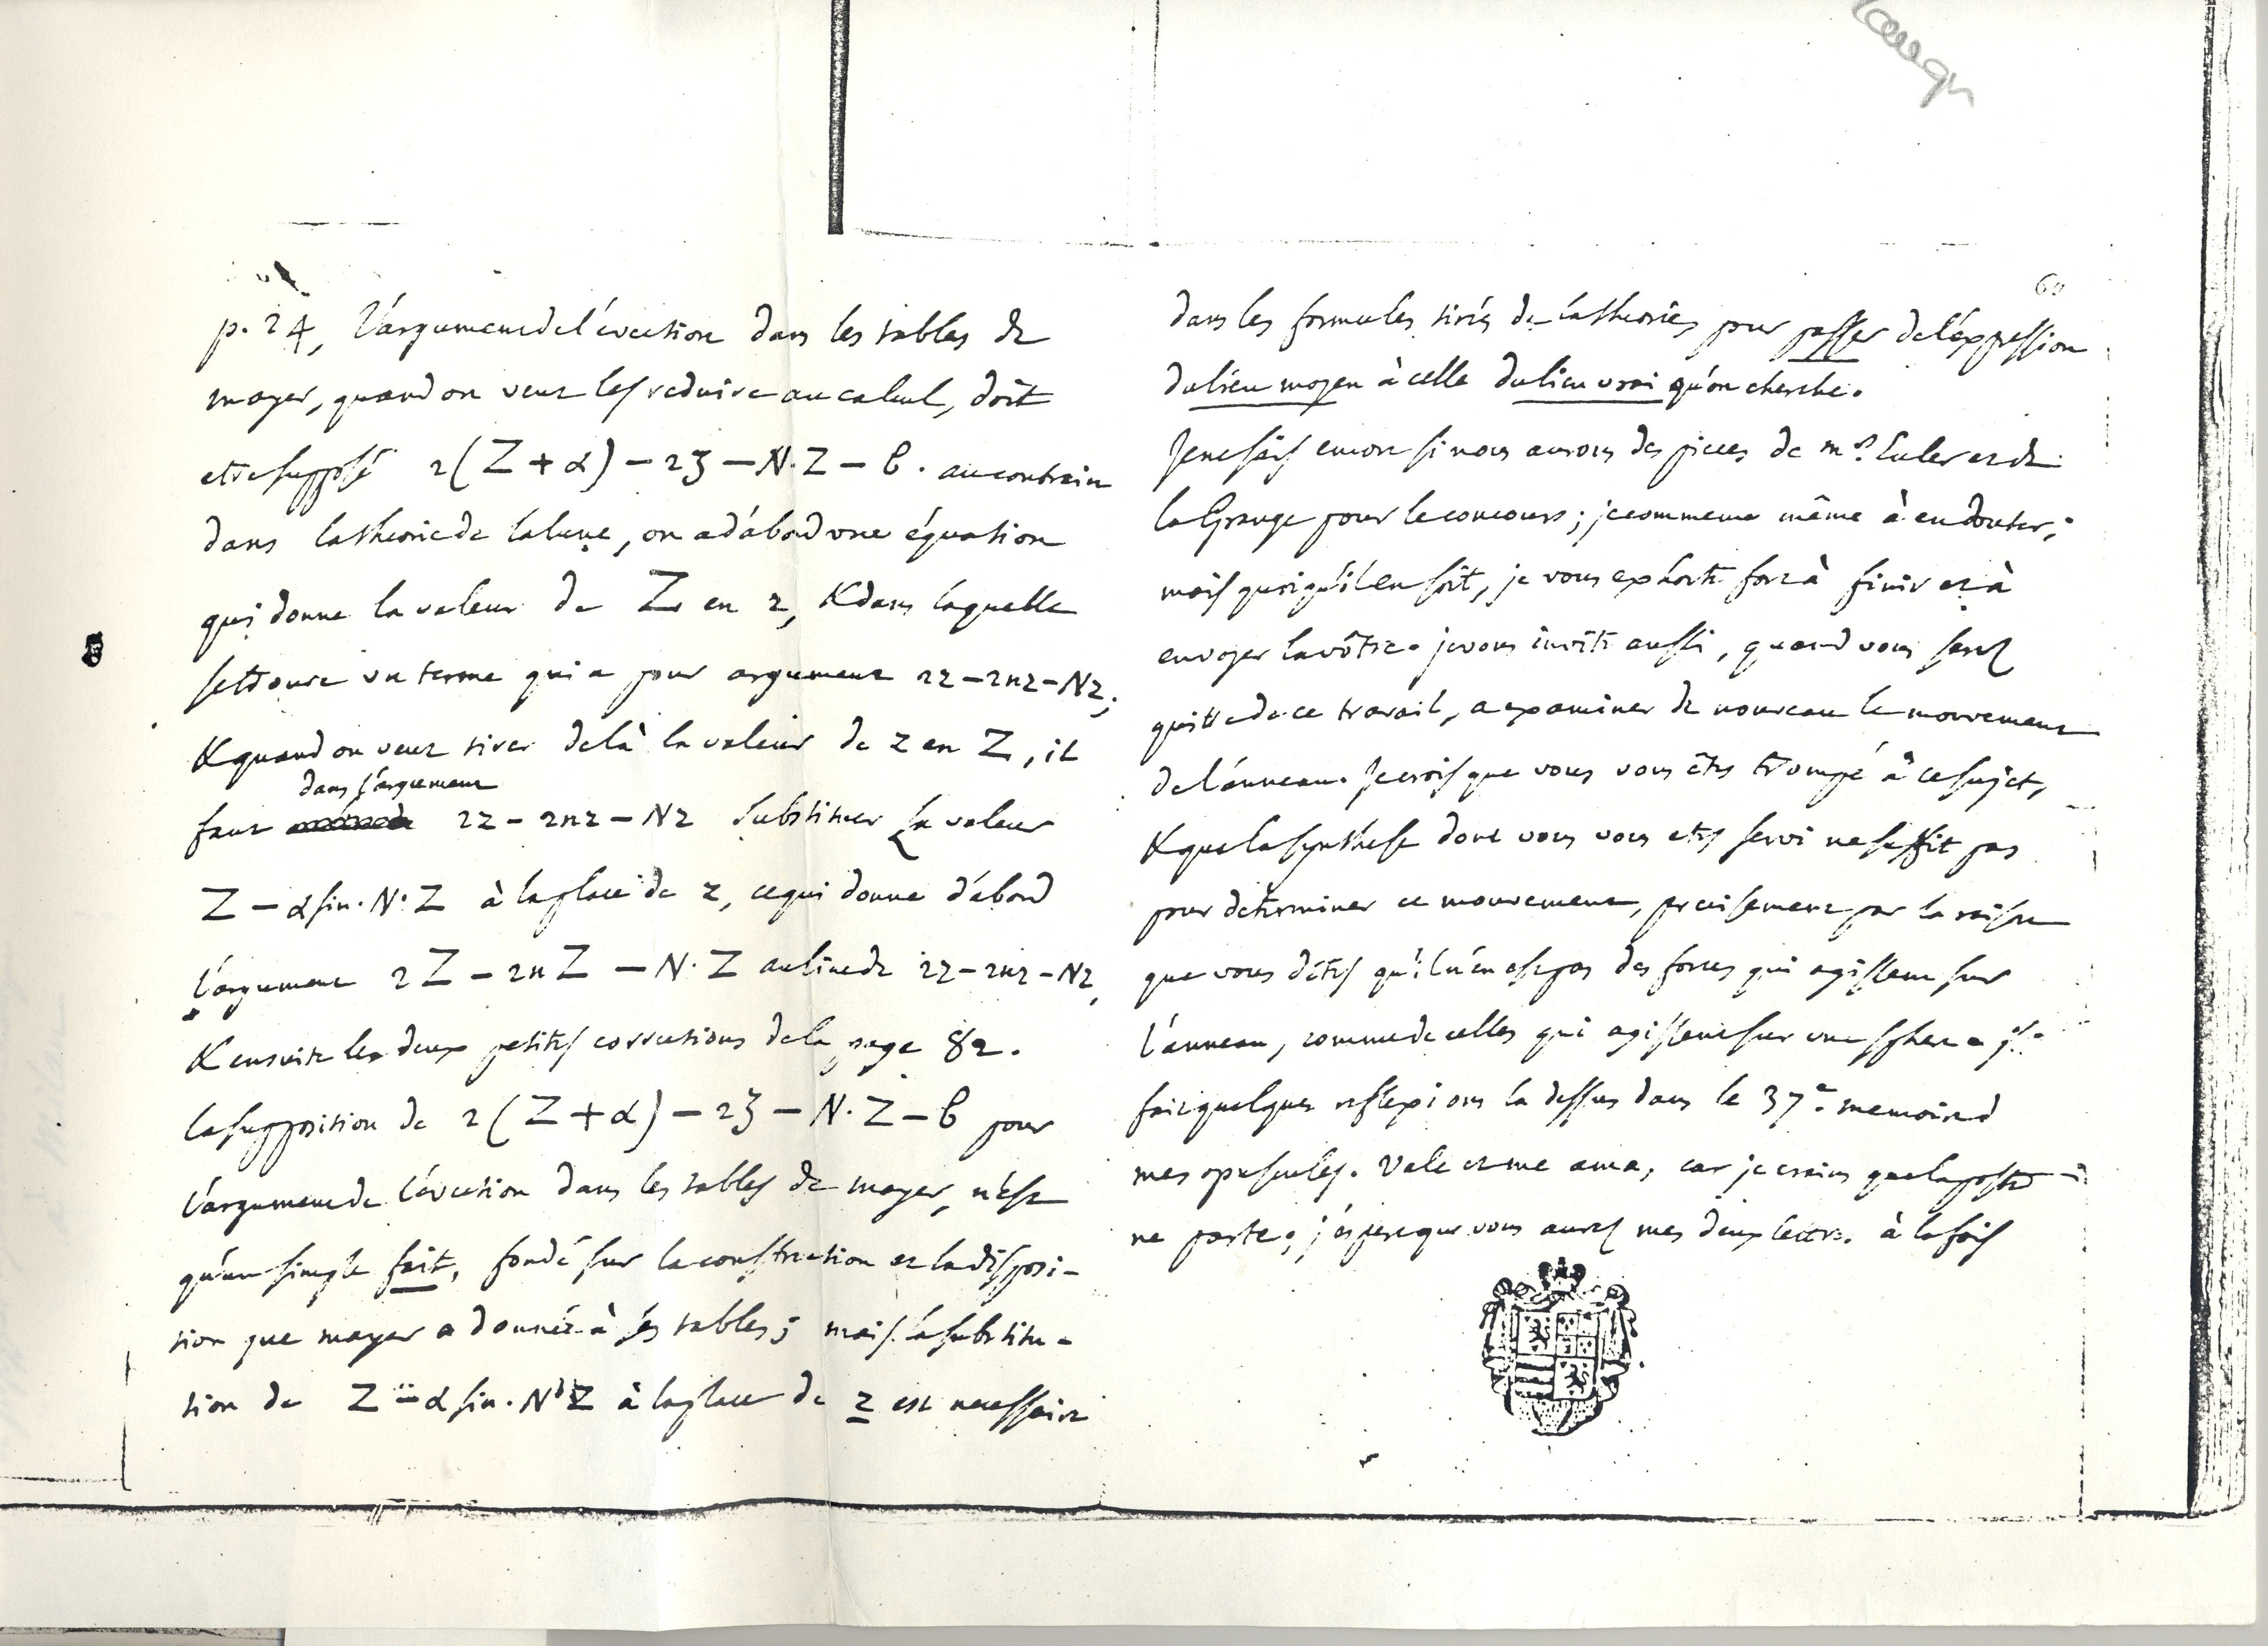 p. 24, l'argument de l'évection dans les tables de
mayer, quand on veut les reduire au calcul, doit
etre supposé 2(Z + α) – 2ʒ – N·Z – 6. au contraire
dans la theorie de la lune, on a d'abord une équation
qui donne la valeur de Z en z, & dans laquelle
se trouve un terme qui a pour argument 2z – 2nz – Nz;
& quand on veut tirer delà la valeur de z en Z, il
dans l'argument
faut 2z – 2nz – Nz substituer la valeur
Z – α sin. N·Z à la place de z, ce qui donne d'abord
l'argument 2Z – 2nZ – N·Z au lieu de 2z – 2nz – Nz,
& ensuite les deux petites corrections de la page 82.
la supposition de 2(Z + α) – 2ʒ – N·Z – 6 pour
l'argument de l'évection dans les tables de mayer, n'est
qu'un simple fait, fondé sur la construction et la disposi-
tion que mayer a donnée à ses tables; mais la substitu-
tion de Z – α sin. N Z à la place de z est necessaire
60
dans les formules tirées de la theorie, pour passer de l'expression
du lieu moyen à celle du lieu vrai qu'on cherche.
Je ne sais encore si nous aurons des pieces de mrs Euler et de
la Grange pour le concours; je commence même à en douter;
mais quoiqu'il en soit, je vous exhorte fort à finir et à
envoyer la vôtre. je vous invite aussi, quand vous serez
quitte de ce travail, a examiner de nouveau le mouvement
de l'anneau. Je crois que vous vous êtes trompé à ce sujet,
& que la synthese dont vous vous etes servi ne suffit pas
pour determiner ce mouvement, precisement par la raison
que vous dites qu'il n'en est pas des forces qui agissent sur
l'anneau, comme de celles qui agissent sur une sphere.
fait quelques reflexions la dessus dans le 37e. memoire d
mes opuscules. Vale et me ama, car je crains que la poste
ne parte; j'espere que vous aurez mes deux lettres à la fois